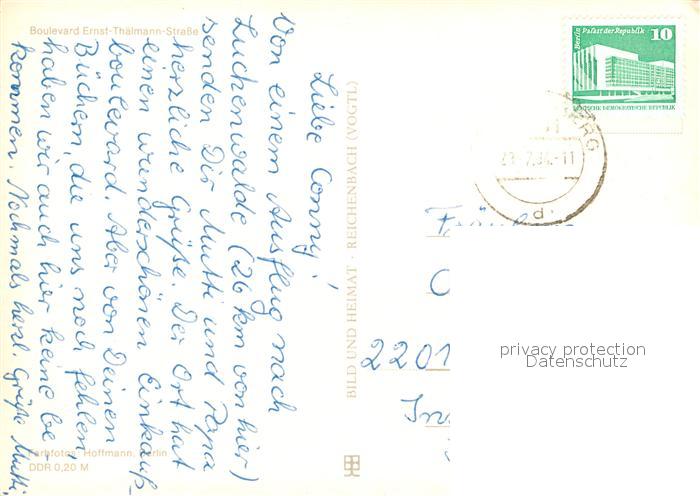 Boulevard Ernst-Thälmann-Straße
Liebe Conny!
Von einem Ausflug nach
Luckenwalde (26 km von hier)
senden Dir Mutti und Papa
herzliche Grüße. Der Ort hat
einen wunderschönen Einkaufs-
boulevard. Aber von Deinen
Büchern, die uns noch fehlen,
haben wir auch hier keine be-
kommen. Nochmals herzl. Grüße Mutti
Farbfotos: Hoffmann, Berlin
DDR 0,20 M
BILD UND HEIMAT · REICHENBACH (VOGTL)
Berlin Palast der Republik
10
DEUTSCHE DEMOKRATISCHE REPUBLIK
2201
privacy protection
Datenschutz